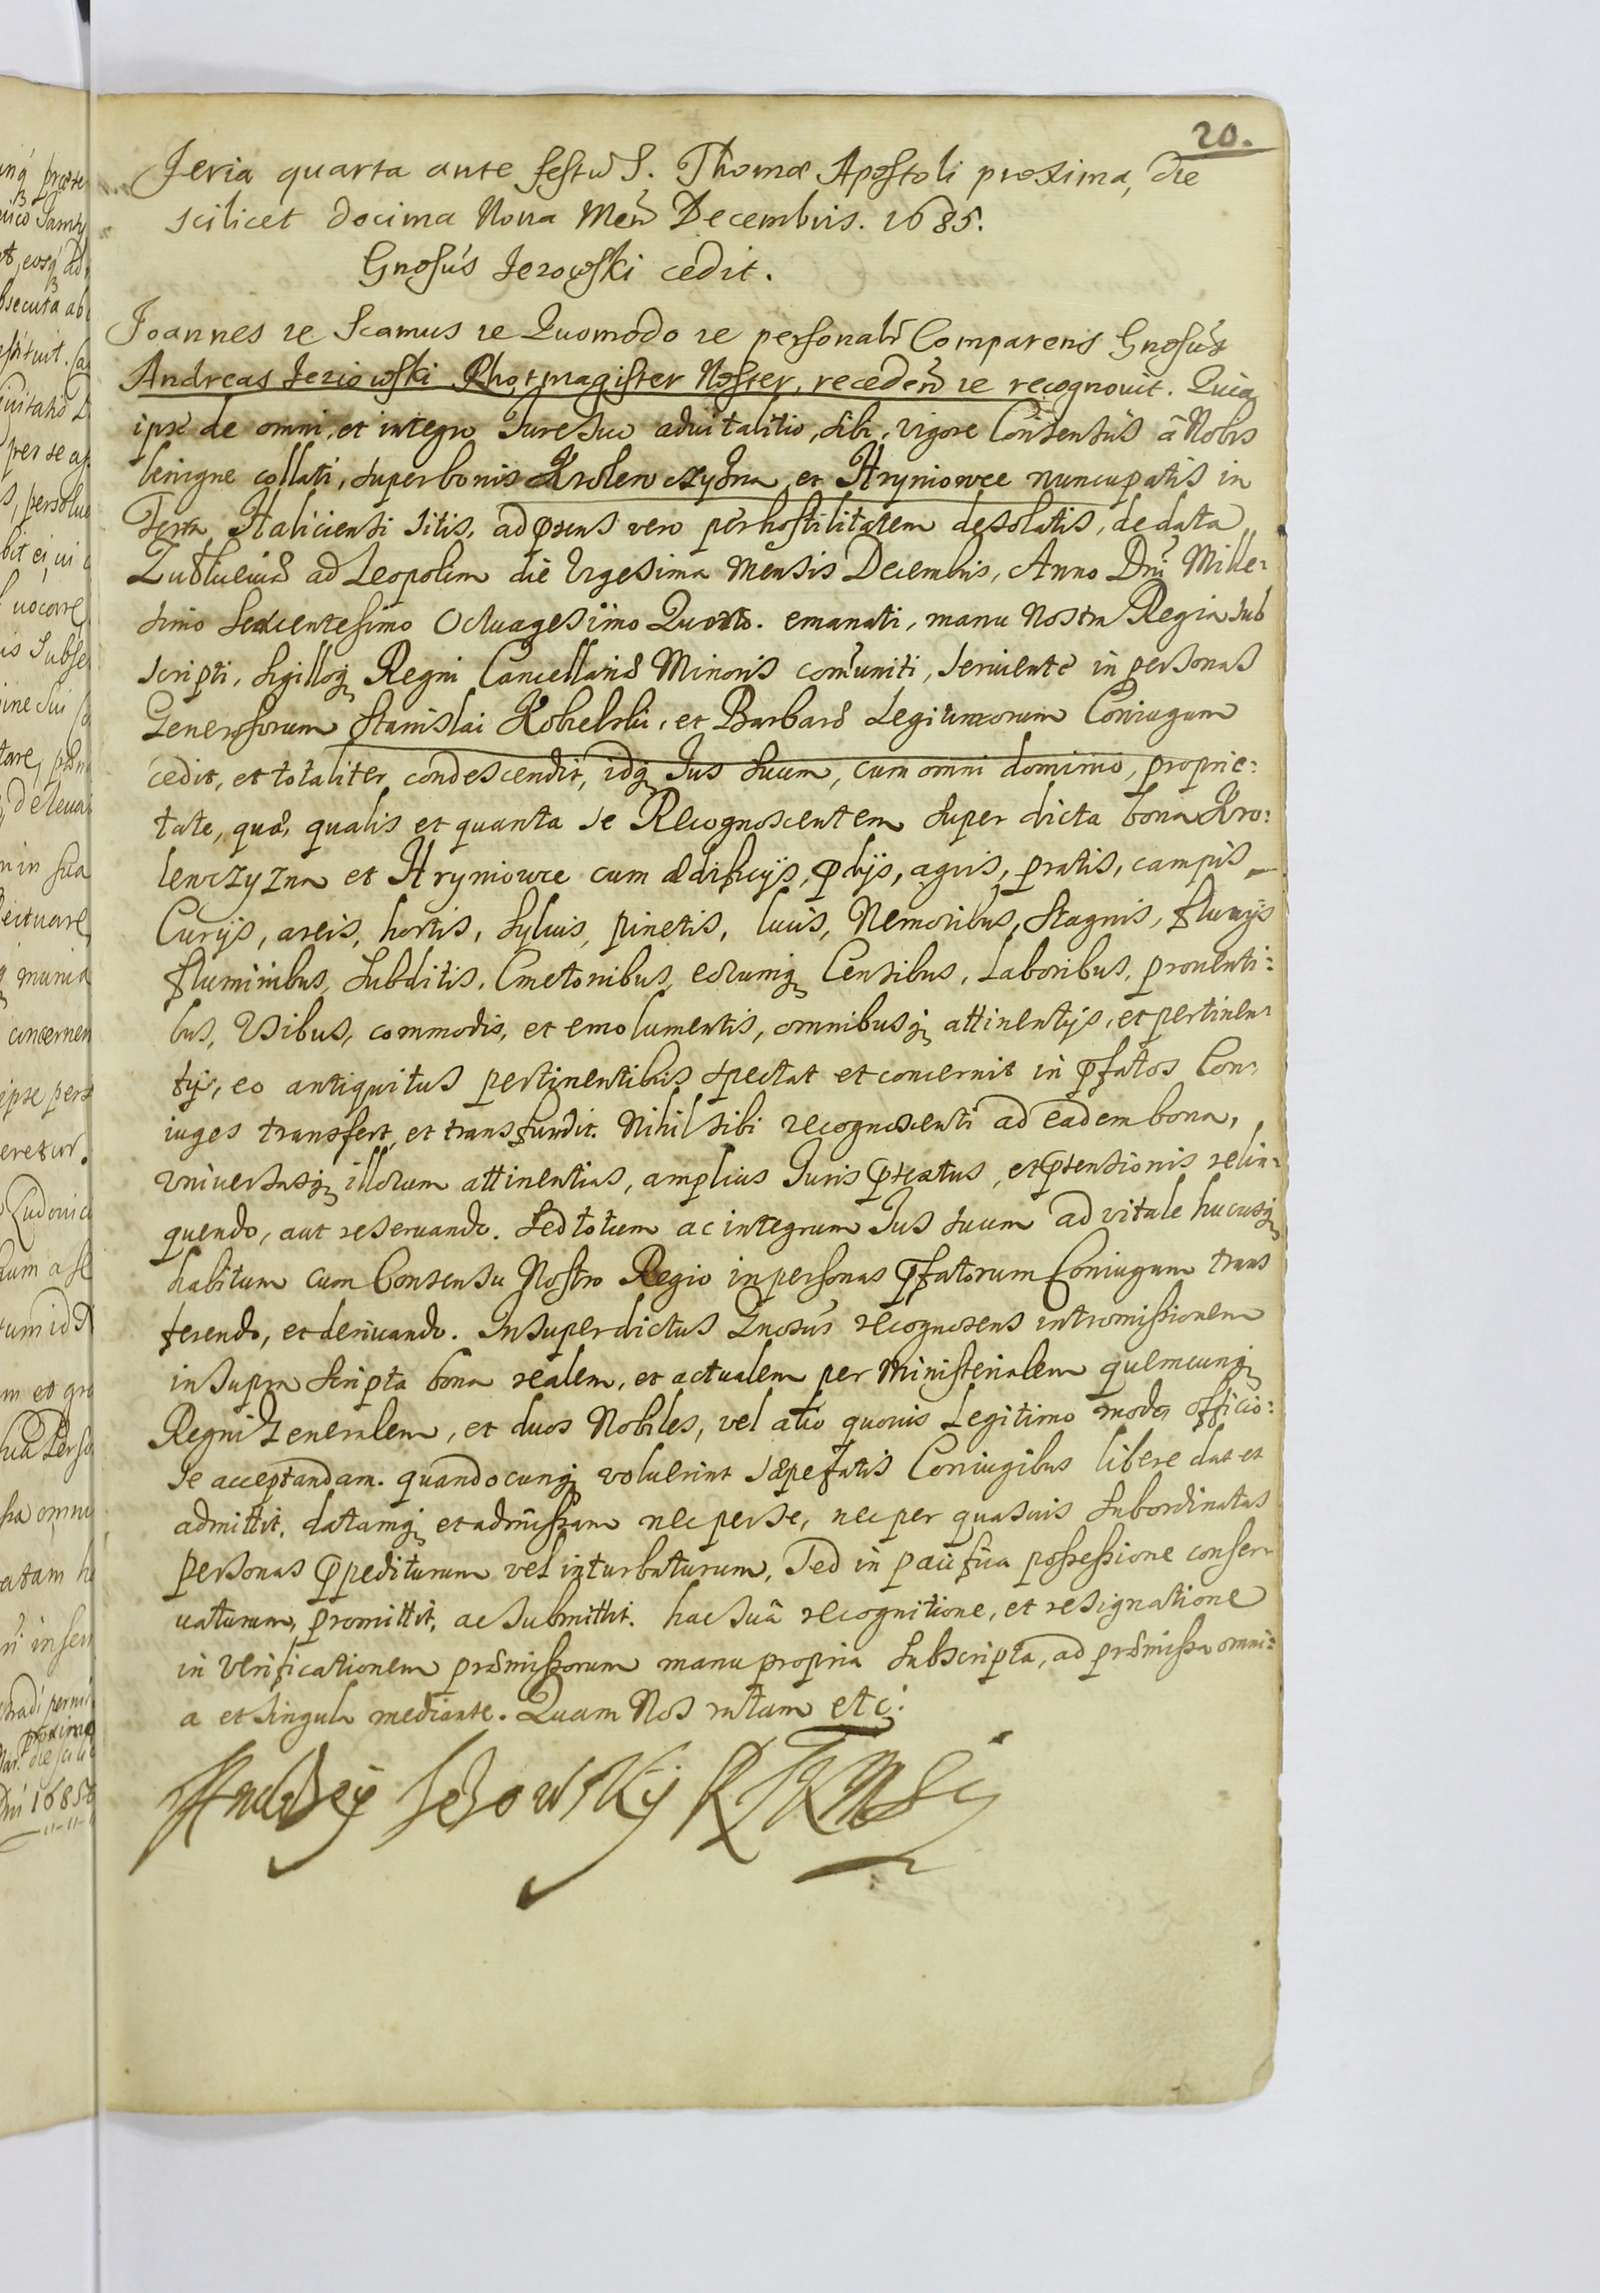 20.
Feria quarta ante festũ S. Thomæ Apostoli proxima, die
scilicet Decima Nona Meñ Decembris. 1685.
Gnosus Jezowski cedit.
Joannes re Scamus re Quomodo re personalr Comparens Gnosus
Andreas Jeziowski Rhotmagister Noster, recedeñ re recognovit. Quia
ipse de omni, et integro Jure suo advitalitio, sibi, vigore Consensus â Nobis
benigne collati, super bonis Krolewczyzna et Hryniowce nuncupatis in
Terra Haliciensi sitis, ad præsens vero per hostilitatem desolatis, de data
ad Leopolim die Vigesima Mensis Decembris, Anno Dni Mille-
simo Sexcentesimo Octuagesimo Quarto. emanati, manu Nostra Regia sub
scripti, sigilloq Regni Cancellariæ Minoris comuniti, serviente in personas
Generosorum Stanislai Kobielski, et Barbaræ Legitimorum Coniugum
cedit, et totaliter condescendit, idq Jus suum, cum omni dominio, proprie:
tate, quæ, qualis et quanta se Recognoscentem super dicta bona Kro:
lewczyzna et Hryniowce cum ædificijs, pdijs, agris, pratis, campis
Curijs, areis, hortis, sylvis, pinetis, lucis, Nemoribus, Stagnis, fluvijs
fluminibus, subditis, Cmetonibus, eorumq Censibus, Laboribus, proventi:
bus, Usibus, commodis, et emolumentis, omnibusq attinentijs, et pertinen:
tijs, eo antiquitus pertinentibus spectat et concernit in pfatos Con:
iuges transfert, et transfundit. Nihil sibi recognoscenti ad eadem bona,
universasq illorum attinentias, amplius Juris ptextus, et ptensionis relin:
quendo, aut reservando. Sed totum ac integrum Jus suum ad vitale hucusq
habitum cum Consensu Nostro Regio in personas pfatorum Coniugum trans
ferendo, et derivando. Insuper dictus Gnosus recognoscens intromissionem
in supra scripta bona realem, et actualem per Ministerialem quemcunq
Regni Generalem, et duos Nobiles, vel alio quovis Legitimo modo officio:
se acceptandam. quandocunq voluerint sæpefatis Coniugibus libere dat et
admittit, datamq et admissam nec per se, nec per quasvis subordinatas
personas pediturum vel inturbaturum, Sed in pacifica possessione conser
vaturum, promittit, ac submittit. hac suâ recognitione, et resignatione
in Verificationem præmissorum manu propria subscripta, ad præmissa omni:
a et singula mediante. Quam Nos ratam etc:
Andrzey Jezowsky